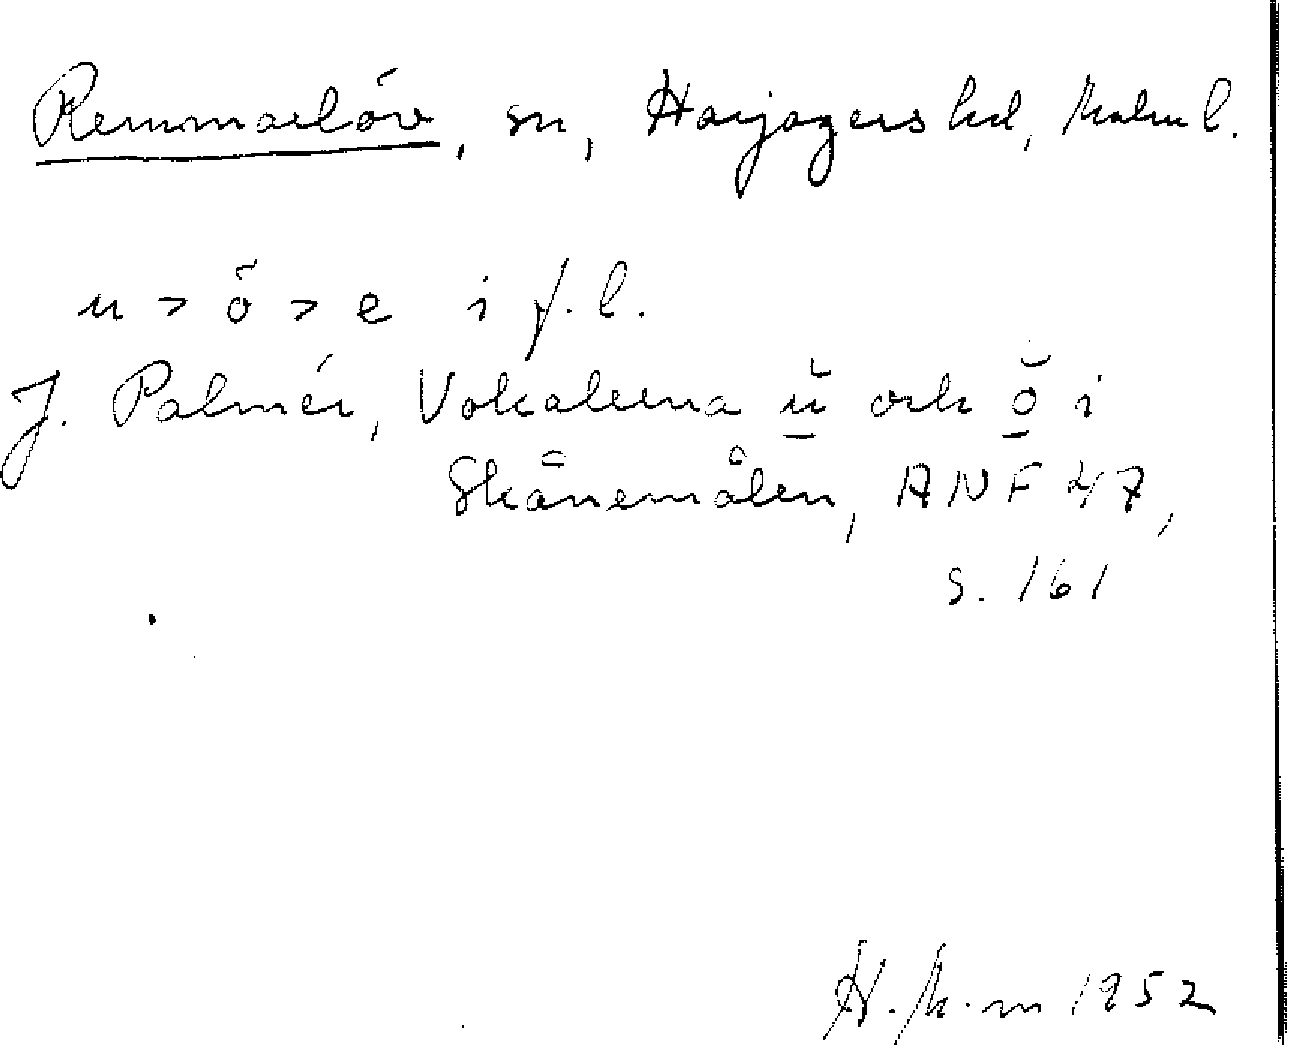 Remmarlöv, sn, Harjagers hd, Malm l.
u > ö > e i f. l.
J. Palmér, Vokalerna ŭ och ŏ i
Skånemålen, ANF 47,
s. 161
H. M-m 1952